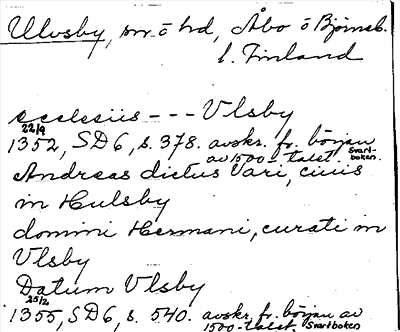 Ulvsby, sn. o hd, Åbo o Björneb.
l. Finland
ecclesiis --- Vlsby
22/9
1352, SD6, s. 378. avskr. fr. början
av 1500-talet. Svart-
boken.
Andreas dictus Vari, ciuis
in Hulsby
domini Hermani, curati in
Vlsby
Datum Vlsby
25/2
1355, SD6, s. 540. avskr. fr. början av
1500-talet. Svartboken